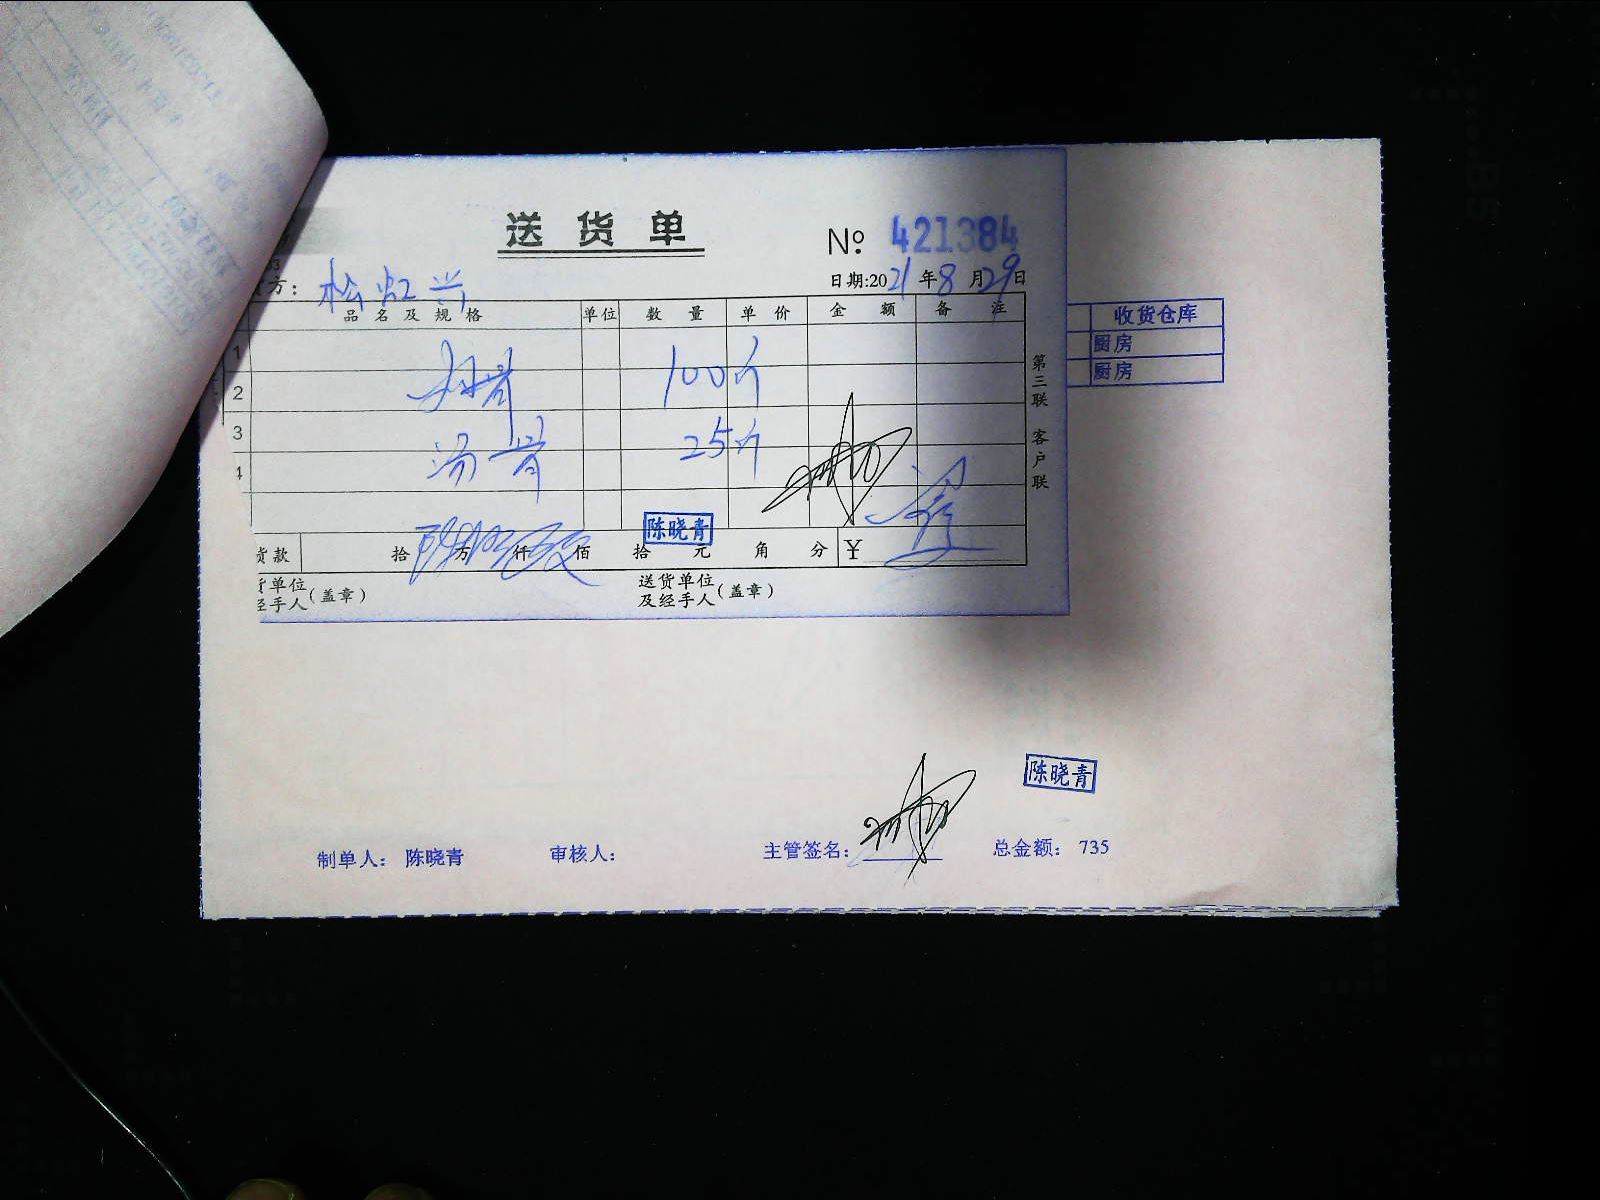 送货单
№ 421384
方： 松虹兴
日期:2021年8月29日
品名及规格 单位 数量 单价 金额 备注
收货仓库
厨房
厨房
1
2 100斤
3
汤骨 25斤
4
第三联 客户联
陈晓青
货款 拾 万 仟 佰 拾 元 角 分 ¥
单位
经手人（盖章）
送货单位
及经手人（盖章）
陈晓青
制单人： 陈晓青 审核人： 主管签名： 总金额： 735